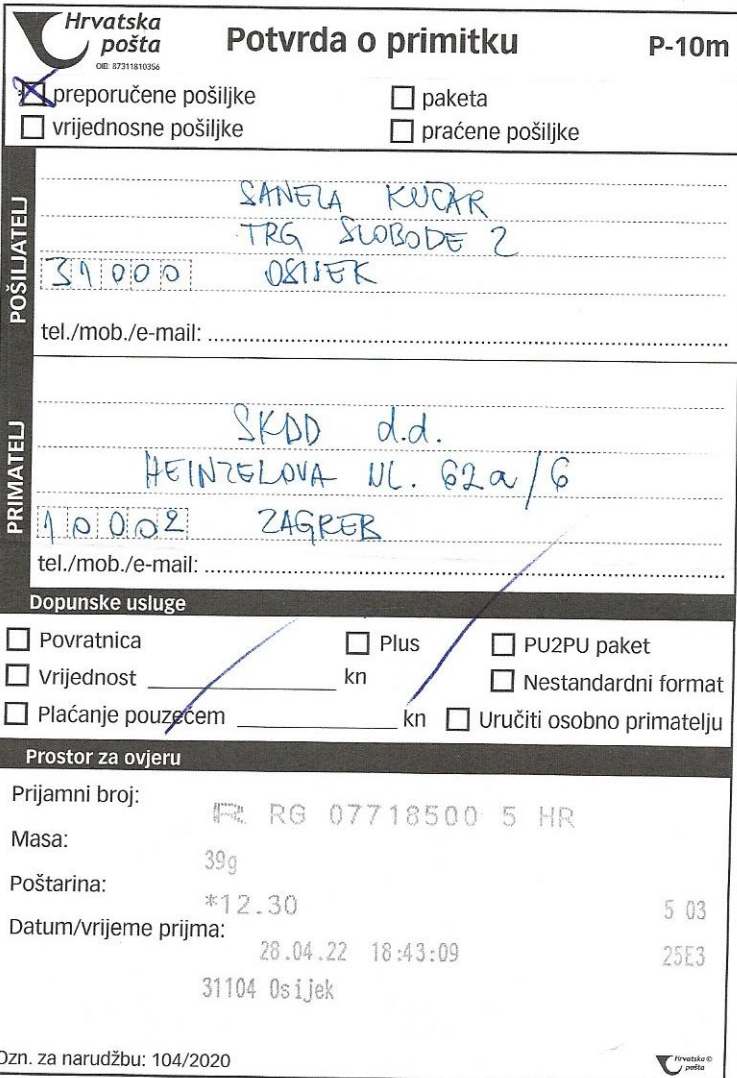 Hrvatska pošta
OIB: 87311810356
Potvrda o primitku
P-10m
preporučene pošiljke
paketa
vrijednosne pošiljke
praćene pošiljke
POŠILJATELJ
SANELA KUČAR
TRG SLOBODE 2
31000 OSIJEK
tel./mob./e-mail:
PRIMATELJ
SKDD d.d.
HEINZELOVA UL. 62a/6
10002 ZAGREB
tel./mob./e-mail:
Dopunske usluge
Povratnica
Plus
PU2PU paket
Vrijednost kn
Nestandardni format
Plaćanje pouzećem kn
Uručiti osobno primatelju
Prostor za ovjeru
Prijamni broj:
R RG 07718500 5 HR
Masa:
39g
Poštarina:
*12.30
5 03
Datum/vrijeme prijma:
28.04.22 18:43:09
25E3
31104 Osijek
Ozn. za narudžbu: 104/2020
Hrvatska pošta